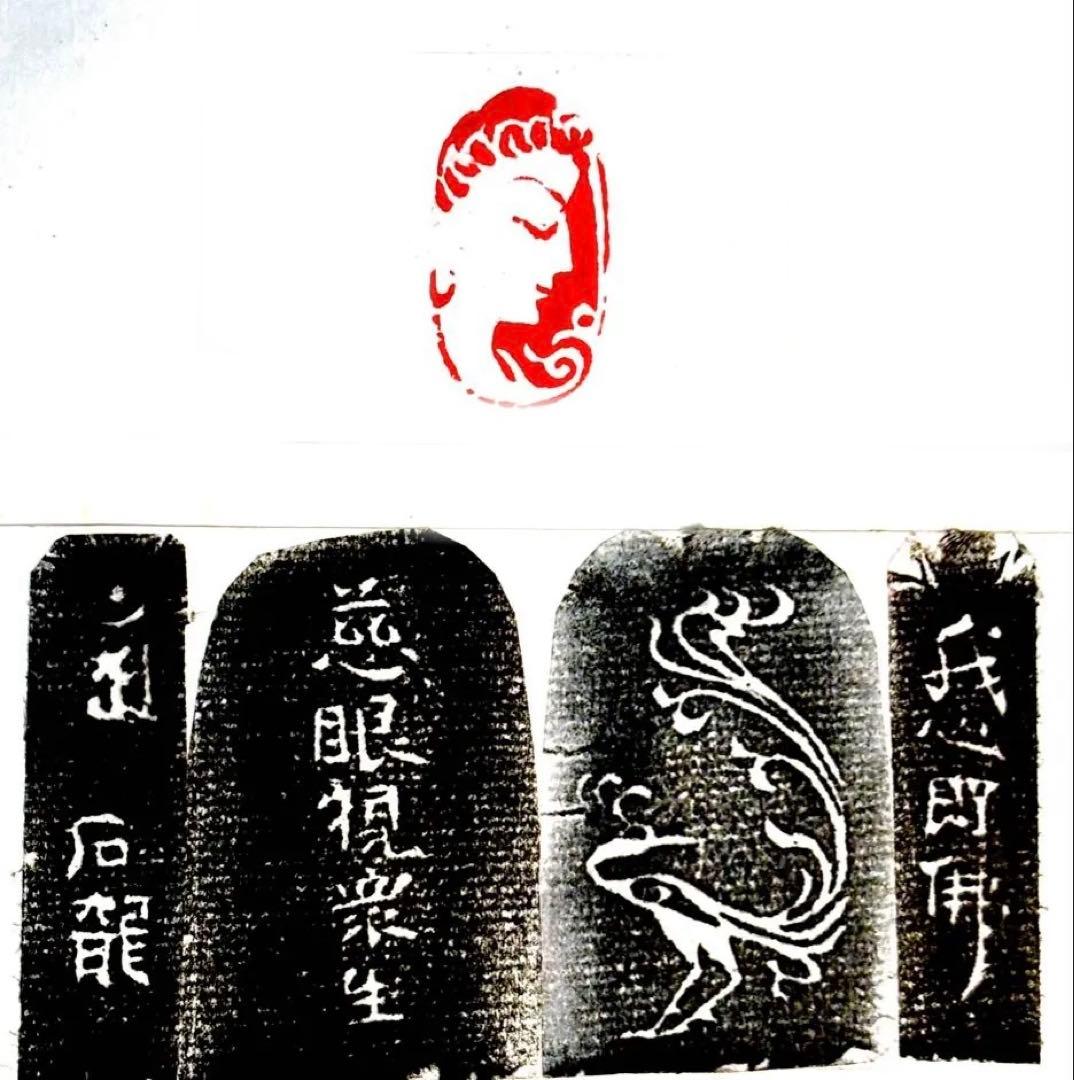 我心即佛
慈眼視衆生
石龍